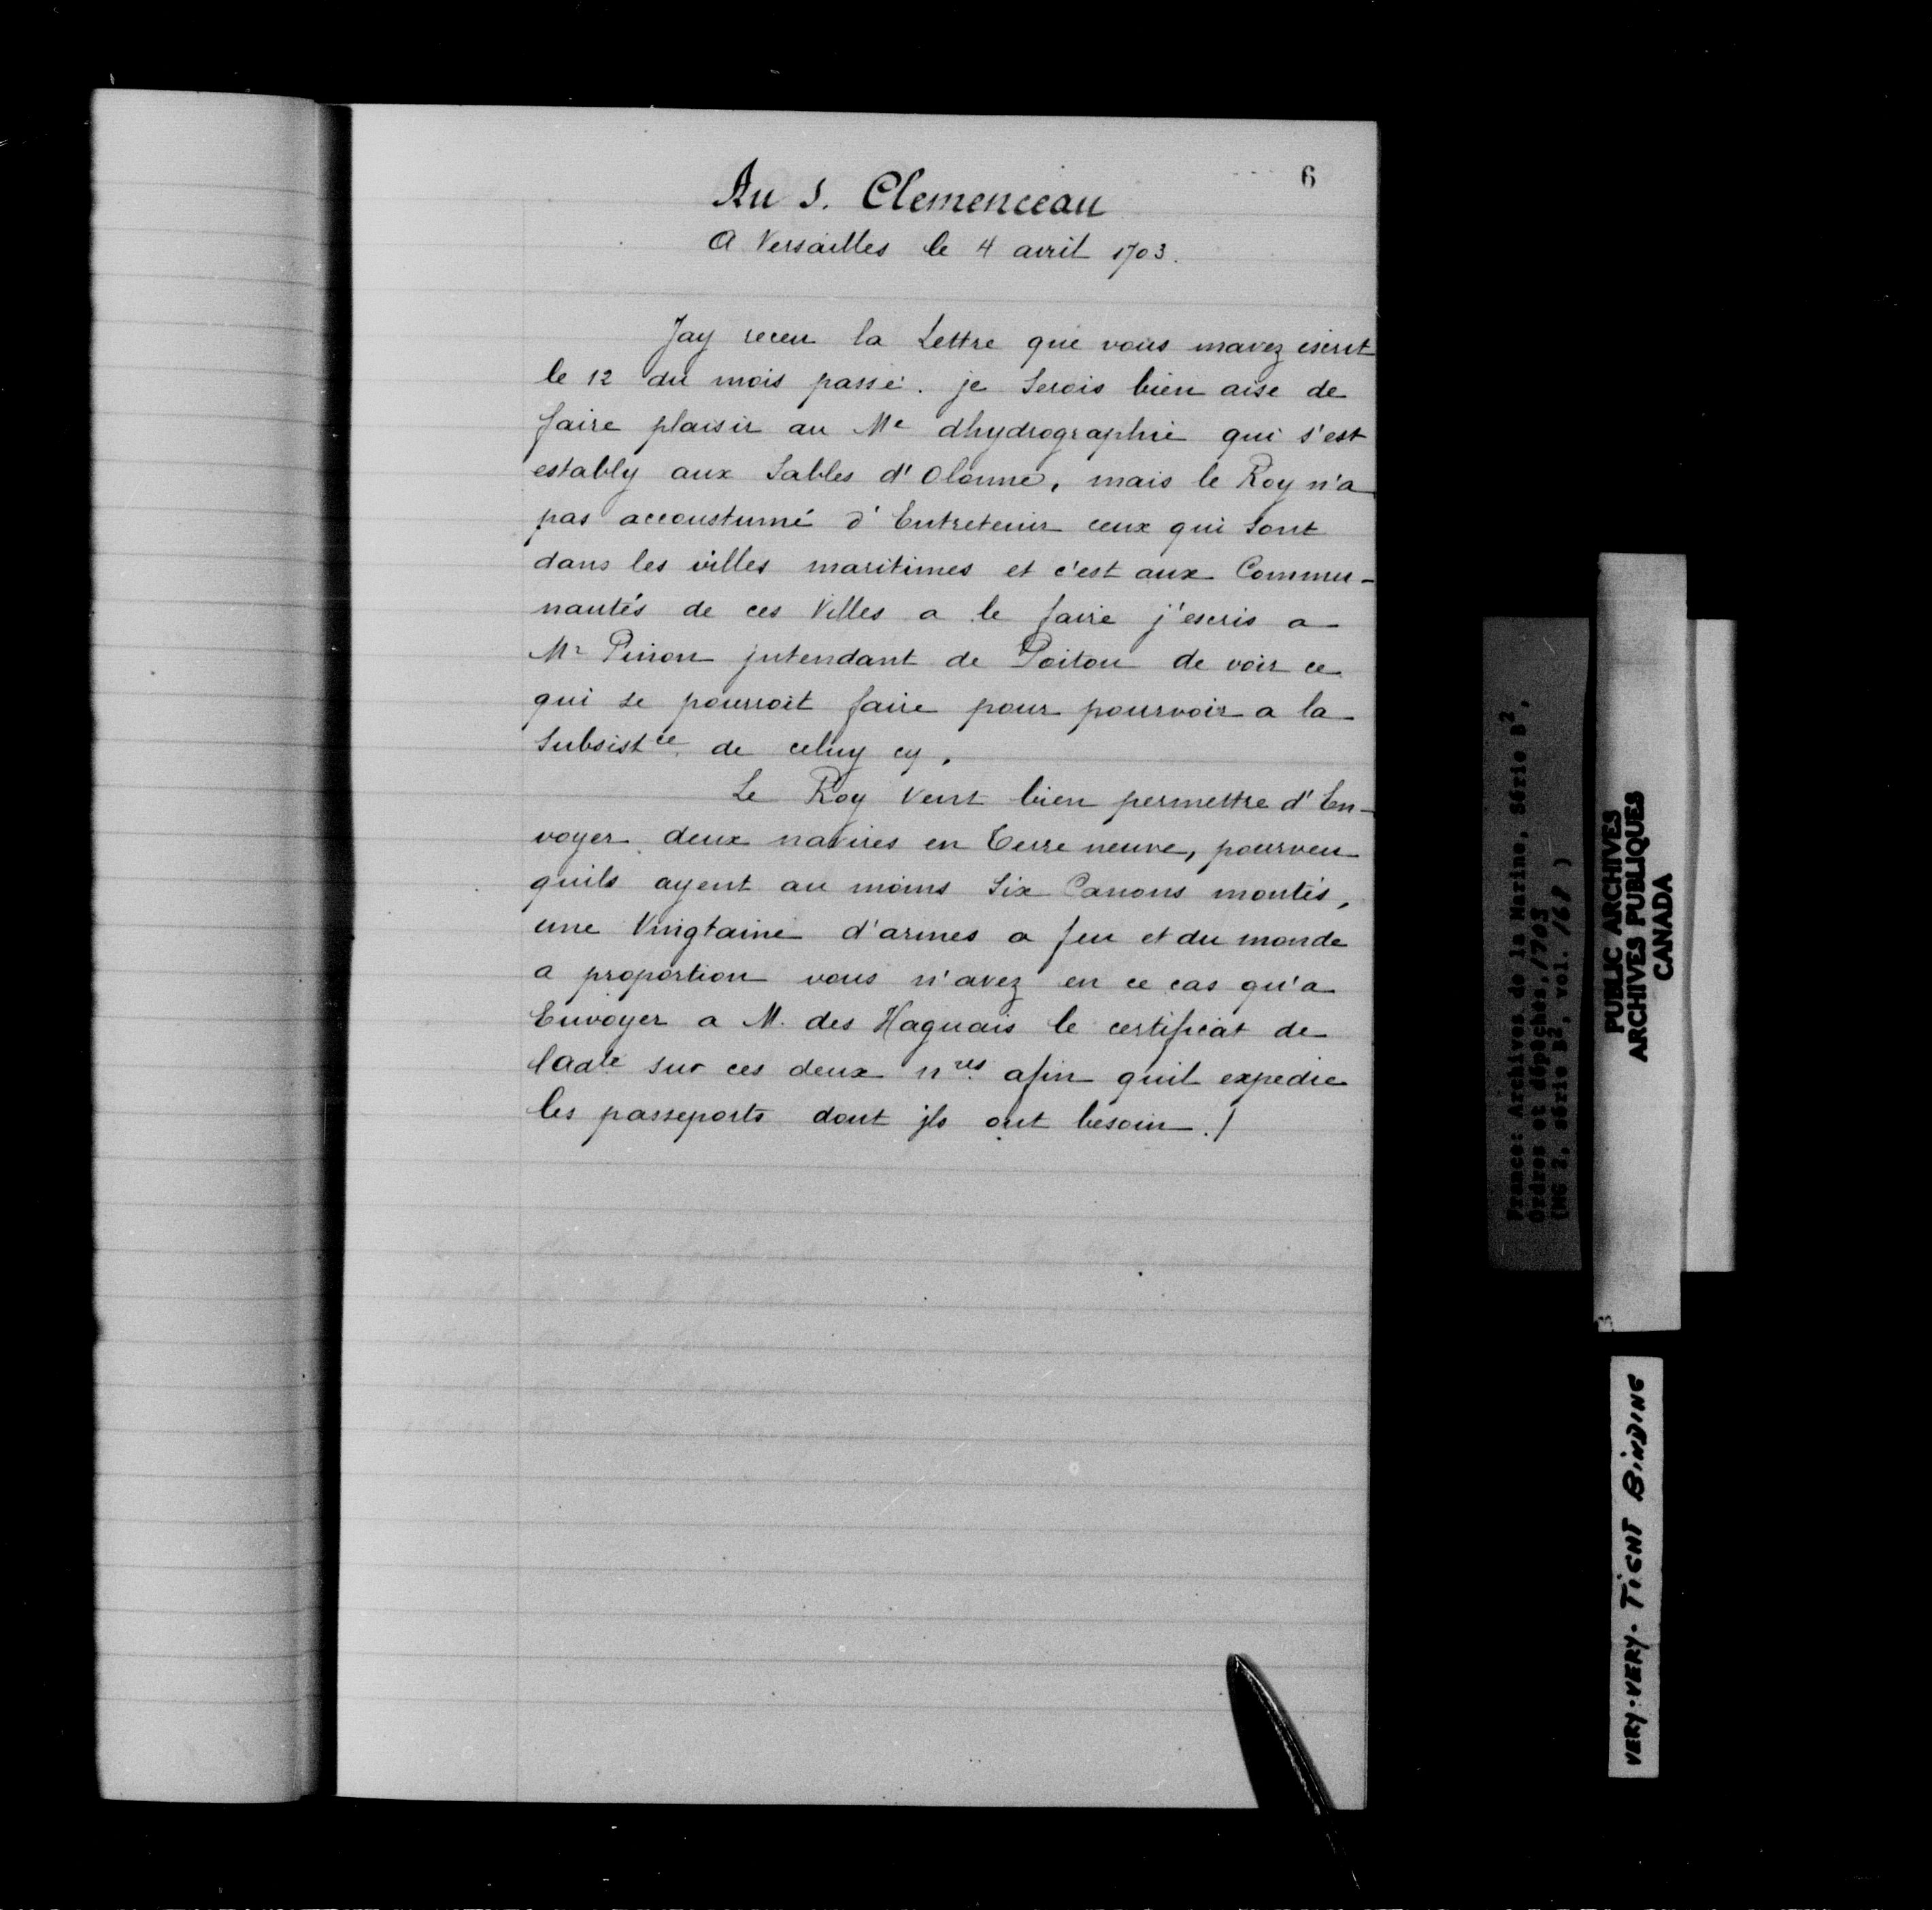 6
Au S. Clemenceau
A Versailles le 4 avril 1703.
Jay receu la Lettre que vous mavez escrit
le 12 du mois passé. je Serois bien aise de
faire plaisir au Me dhydrographie qui s'est
estably aux Sables d'Olonne, mais le Roy n'a
pas accoustumé d'Entretenir ceux qui Sont
dans les villes maritimes et c'est aux Commu-
nautés de ces Villes a le faire j'escris a
Mr Pinon jntendant de Poitou de voir ce
qui se pourroit faire pour pourvoir a la
Subsistce de celuy cy.
Le Roy veut bien permettre d'En-
voyer deux navires en Terre neuve, pourveu
quils ayent au moins Six Canons montés,
une Vingtaine d'armes a feu et du monde
a proportion vous n'avez en ce cas qu'a
Envoyer a M. des Haguais le certificat de
ladte sur ces deux nres afin quil expedie
les passeports dont jls ont besoin ./
France: Archives de la Marine, Série B2,
Ordres et dépêches, 1703
(MG 2, série B2, vol. 168 )
PUBLIC ARCHIVES
ARCHIVES PUBLIQUES
CANADA
3
VERY-VERY-TIGHT BINDING